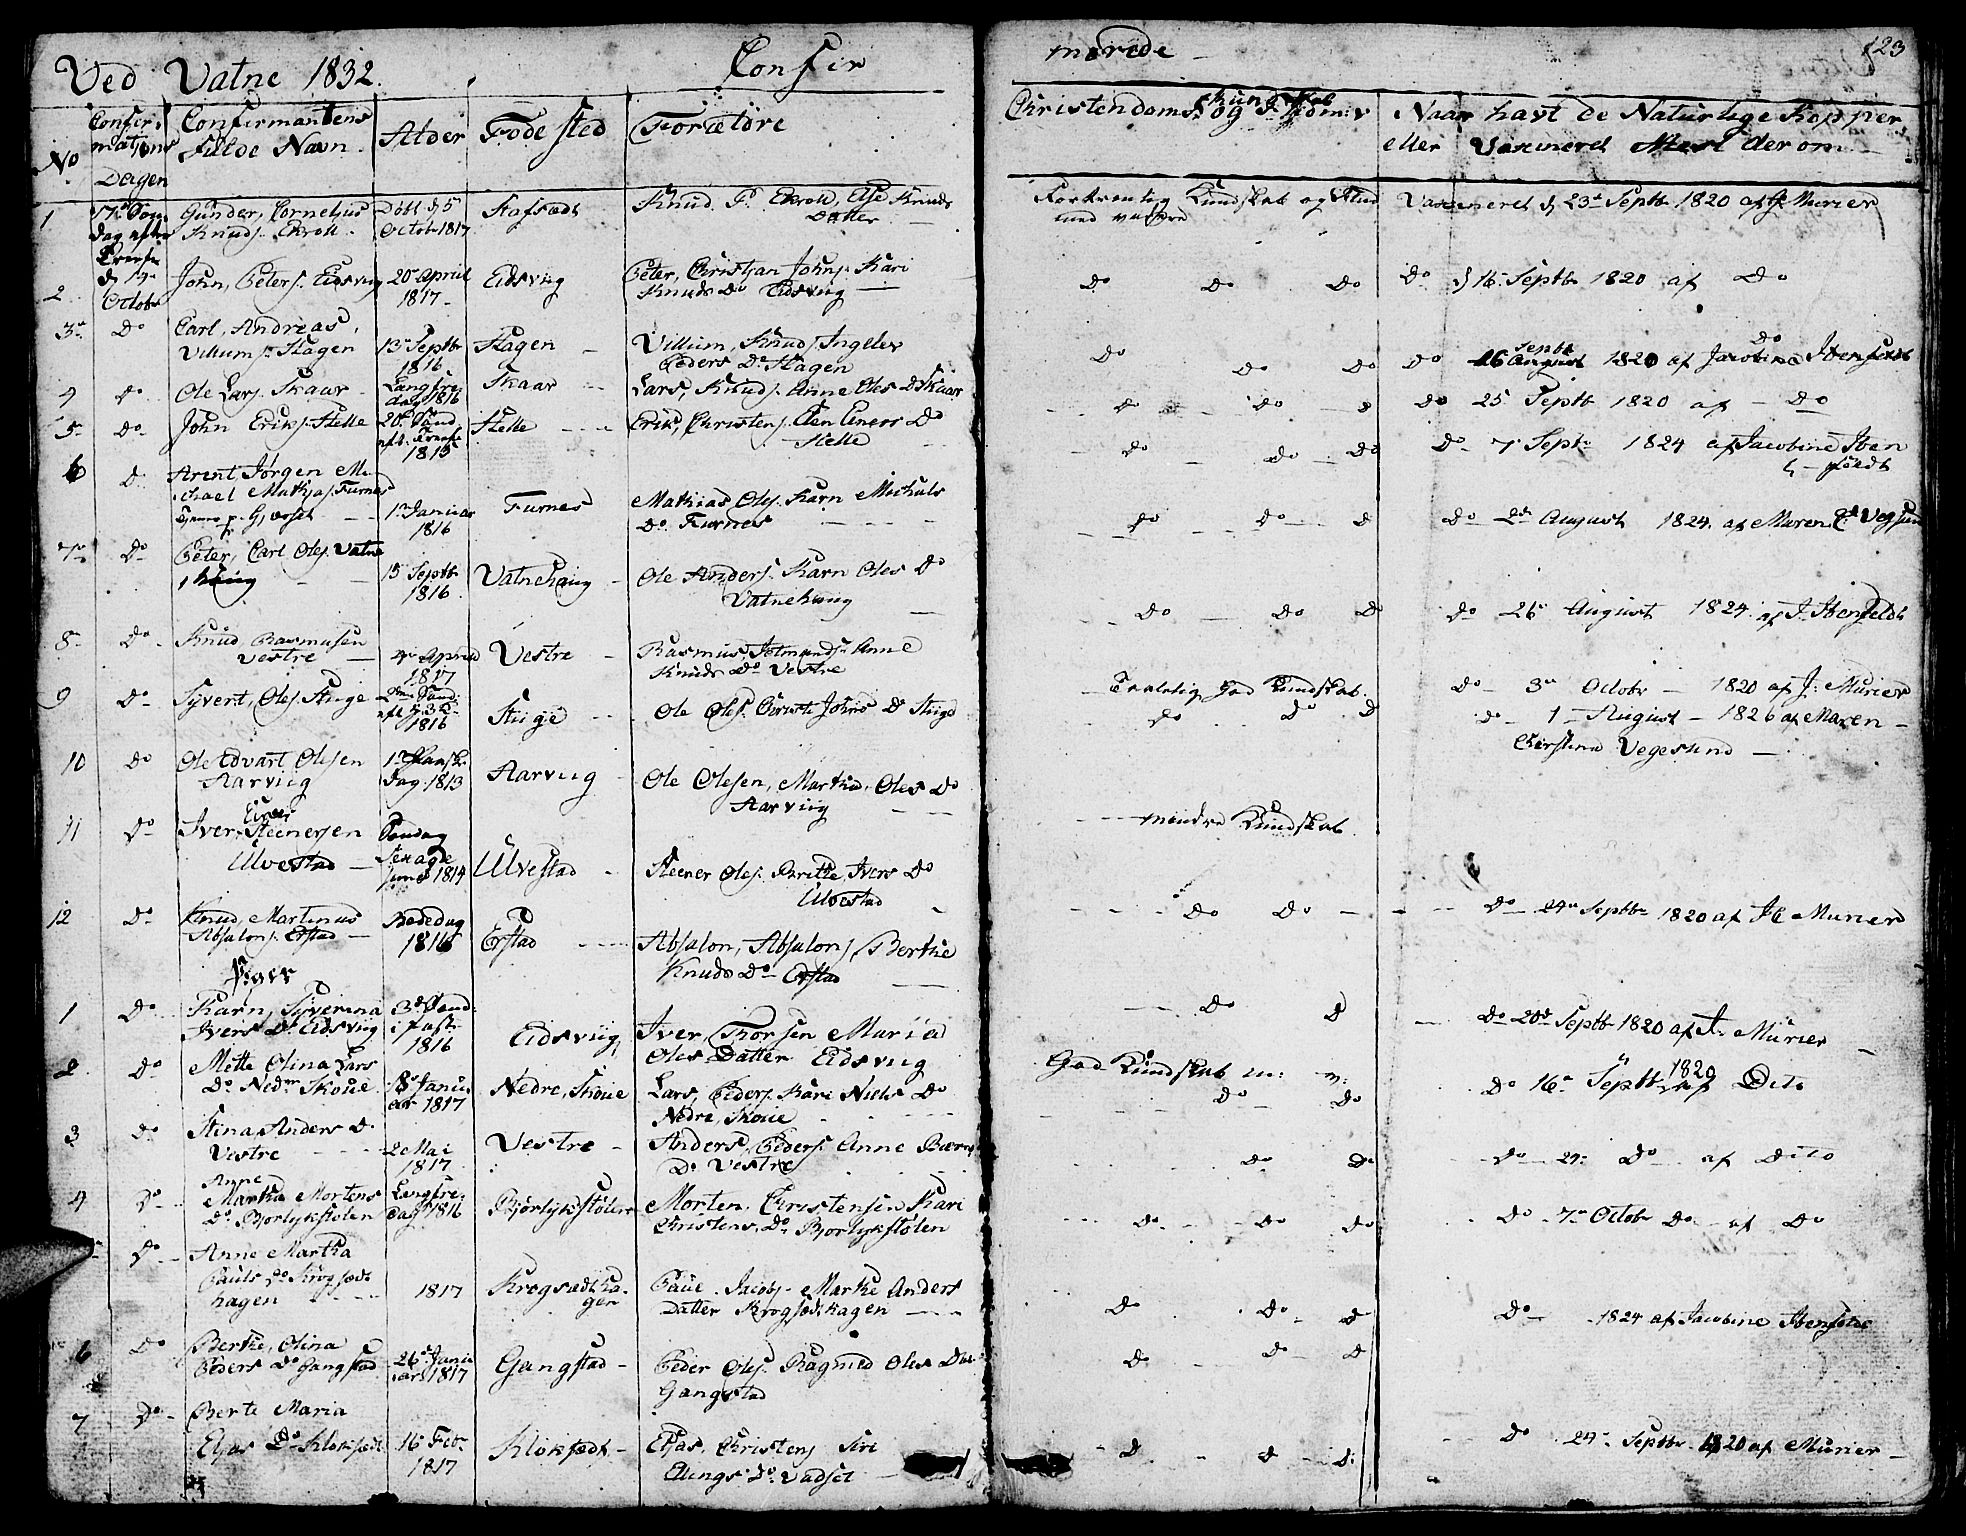 Ved Vatne 1832. Confir
merede
123
No
Confir
mations
Dagen
Confirmantens
Fulde Navn
Alder
Føde sted
Forældre
Christendoms kundskab
og
Naar havt de Naturlige Kopper
eller Vaxineret der om
1
17de Søn
dag efter
d 14
Octobr
Gunder, Cornelius
Knuds. Ekroll
Døbt d 5
Octobr 1817
Stafsædt
Knud P. Ekroll, Else Knuds
Datter
Kundskab og
Vaxineret d 23de Septbr 1820 af J. Murier
2
John, Peters. Eidsviig
20de April
1817
Eidsviig
Peter, Christjan Johns. Kari
Knuds Do Eidsviig
Do Do Do
Do d 16 Septbr 1820 af Do
3
Do
Carl, Andreas,
Villums. Hagen
13de Septbr
1816
Hagen
Villum, Knuds. Ingeler
Peders Do Hagen
Do Do Do
Do 16 Septbr August 1820 af Jacobine Ibenfeldt
Do
4
Do
Ole Lars. Skaar
Langfre
dag 1816
Skaar
Lars, Knuds. Anne Oles D Skaar
Do Do D
Do 25 Septb 1820 af Do
5
Do
John Eriks. Helle
20de
1815
Helle
Erik, Christens. Elen Eners Do
Helle
Do Do Do
Do 7 Sept 1824 af Jacobine Iben
feldt
6
D
Arent, Jørgen Mi
chael Mathjas. Furnes
1 Januar
1816
Furnes
Mathias Oles. Karn Michals
Do Furnes
Do Do D
Do 2de August 1824 af Maren C Vegsund
7
Do
Peter, Carl Oles. Vatne
houg
15 Septbr
1816
Vatnehoug
Ole Anders. Karn Oles Do
Vatnehoug
Do Do D
Do 26 August 1824 af J. Ibenfeldt
8
Do
Knud Rasmusen
Vestre
4de April
1817
Vestre
Rasmus, Anne
Knuds Do Vestre
Taalelig god Kundskab
Do 3de Octobr 1820 af J. Murier
9
Do
Syvert, Oles. Stige
1816
Stige
Ole Oles. Christi Johns D Stige
do Do D
Do 1 August 1826 af Maren
Christina Vegesund
10
Do
Ole Edvart Olesen
Aarviig
dag 1813
Aarviig
Ole Olesen, Martha, Oles Do
Aarviig
mindre Kundskab
11
Do
Iver, Steenersen
Ulvestad
Søndag
Sexage
sima 1814
Ulvestad
Steener Oles. Brithe, Ivers Do
Ulvestad
Do Do
Do 24de Septbr 1820 af J C Murier
12
Do
Knud, Martinus
Absalons. Erstad
Bededag
1816
Erstad
Absalon, Absalons, Berthe
Knuds Do Erstad
Do D
Piger
1
Do
Karn, Syverina
Ivers D. Eidsviig
3de Sønd
i fast
1816
Eidsviig
Iver, Thorsen Maria
Oles Datter Eidsviig
God Kundskab m: v:
Do 20de Septbr 1820 af J. Murier
2
Do
Mette Olina Lars
Do Nedre Skoue
18 Janu
ar 1817
Nedre, Skoue
Lars, Peders. Kari Niels Do
Nedre, Skoue
Do Do
Do 16de Septbr 1820 af Dito
3
Do
Stina Anders D.
Vestre
2 Mai
1817
Vestre
Anders, Peders. Anne
D. Vestre
Do Do
Do 24: Do af Dito
4
Do
Anne
Martha Mortens
D. Bjorlykstølen
Langfre
dag 1816
Bjørlykstølen
Morten, Christensen Kari
Christens, Do Bjorlykstølen
Do Do Do
Do 7de Octobr Do af Do
Do
Anne Martha
Pauls Do Krogsædt
hagen
1817
Krogsædtha
gen
Paul Jacobs. Marthe Anders
Datter Krogsædthagen
Do Do D
Do 1824 af Jacobine Ibenfeldt
6
Do
Berthe, Olina
Peders Do Gangstad
26 Janu
ar 1817
Gangstad
Peder Oles. Ragned Oles Do
Gangstad
Do Do D
7
Do
Berte Maria
Eljas Do Kloksædt
16 Feb
1817
Kloksædt
Eljas, Christens. Siri
Ellings Do Vadset
D D D
Do 24 Septbr 1820 af Murier